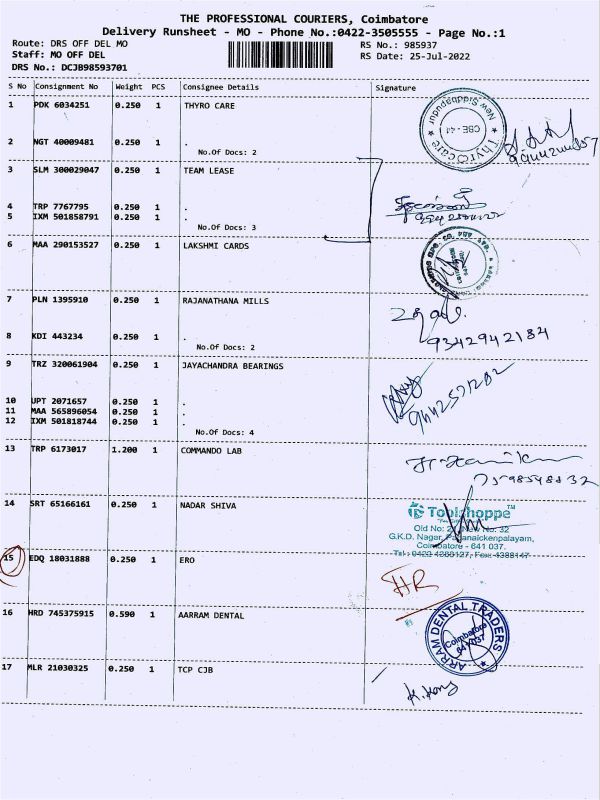 THE PROFESSIONAL COURIERS, Coimbatore
Delivery Runsheet - MO - Phone No.:0422-3505555 - Page No.:1
Route: DRS OFF DEL MO
RS No.: 985937
Staff: MO OFF DEL
RS Date: 25-Jul-2022
DRS No.: DCJB98593701
S No Consignment No Weight PCS Consignee Details Signature
1 PDK 6034251 0.250 1 THYRO CARE
New Siddhapudur
CBE - 44
★ Thyrocare ★
2 NGT 40009481 0.250 1 .
No.Of Docs: 2
3 SLM 300029047 0.250 1 TEAM LEASE
4 TRP 7767795 0.250 1 .
5 IXM 501858791 0.250 1 .
No.Of Docs: 3
6 MAA 290153527 0.250 1 LAKSHMI CARDS
7 PLN 1395910 0.250 1 RAJANATHANA MILLS
8 KDI 443234 0.250 1 .
No.Of Docs: 2
9342942184
9 TRZ 320061904 0.250 1 JAYACHANDRA BEARINGS
10 UPT 2071657 0.250 1 .
11 MAA 565896054 0.250 1 .
12 IXM 501818744 0.250 1 .
No.Of Docs: 4
13 TRP 6173017 1.200 1 COMMANDO LAB
14 SRT 65166161 0.250 1 NADAR SHIVA
Toolshoppe™
Old No: 2 New No. 32
G.K.D. Nagar, Pappanaickenpalayam,
Coimbatore - 641 037.
15 EDQ 18031888 0.250 1 ERO
HR
16 HRD 745375915 0.590 1 AARRAM DENTAL
ARRAM DENTAL TRADERS
Coimbatore
641 037
★
17 MLR 21030325 0.250 1 TCP CJB